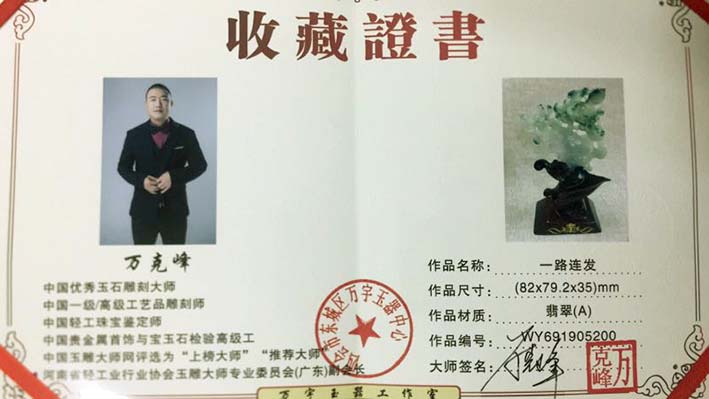 收藏證書
万克峰
中国优秀玉石雕刻大师
中国一级/高级工艺品雕刻师
中国轻工珠宝鉴定师
中国贵金属首饰与宝玉石检验高级工
中国玉雕大师网评选为“上榜大师”“推荐大师”
河南省轻工业行业协会玉雕大师专业委员会(广东)副会长
作品名称: 一路连发
作品尺寸: (82x79.2x35)mm
作品材质: 翡翠(A)
作品编号: WY691905200
大师签名: 万克峰
万克峰
市东城区万字玉器中心
万字玉器工作室